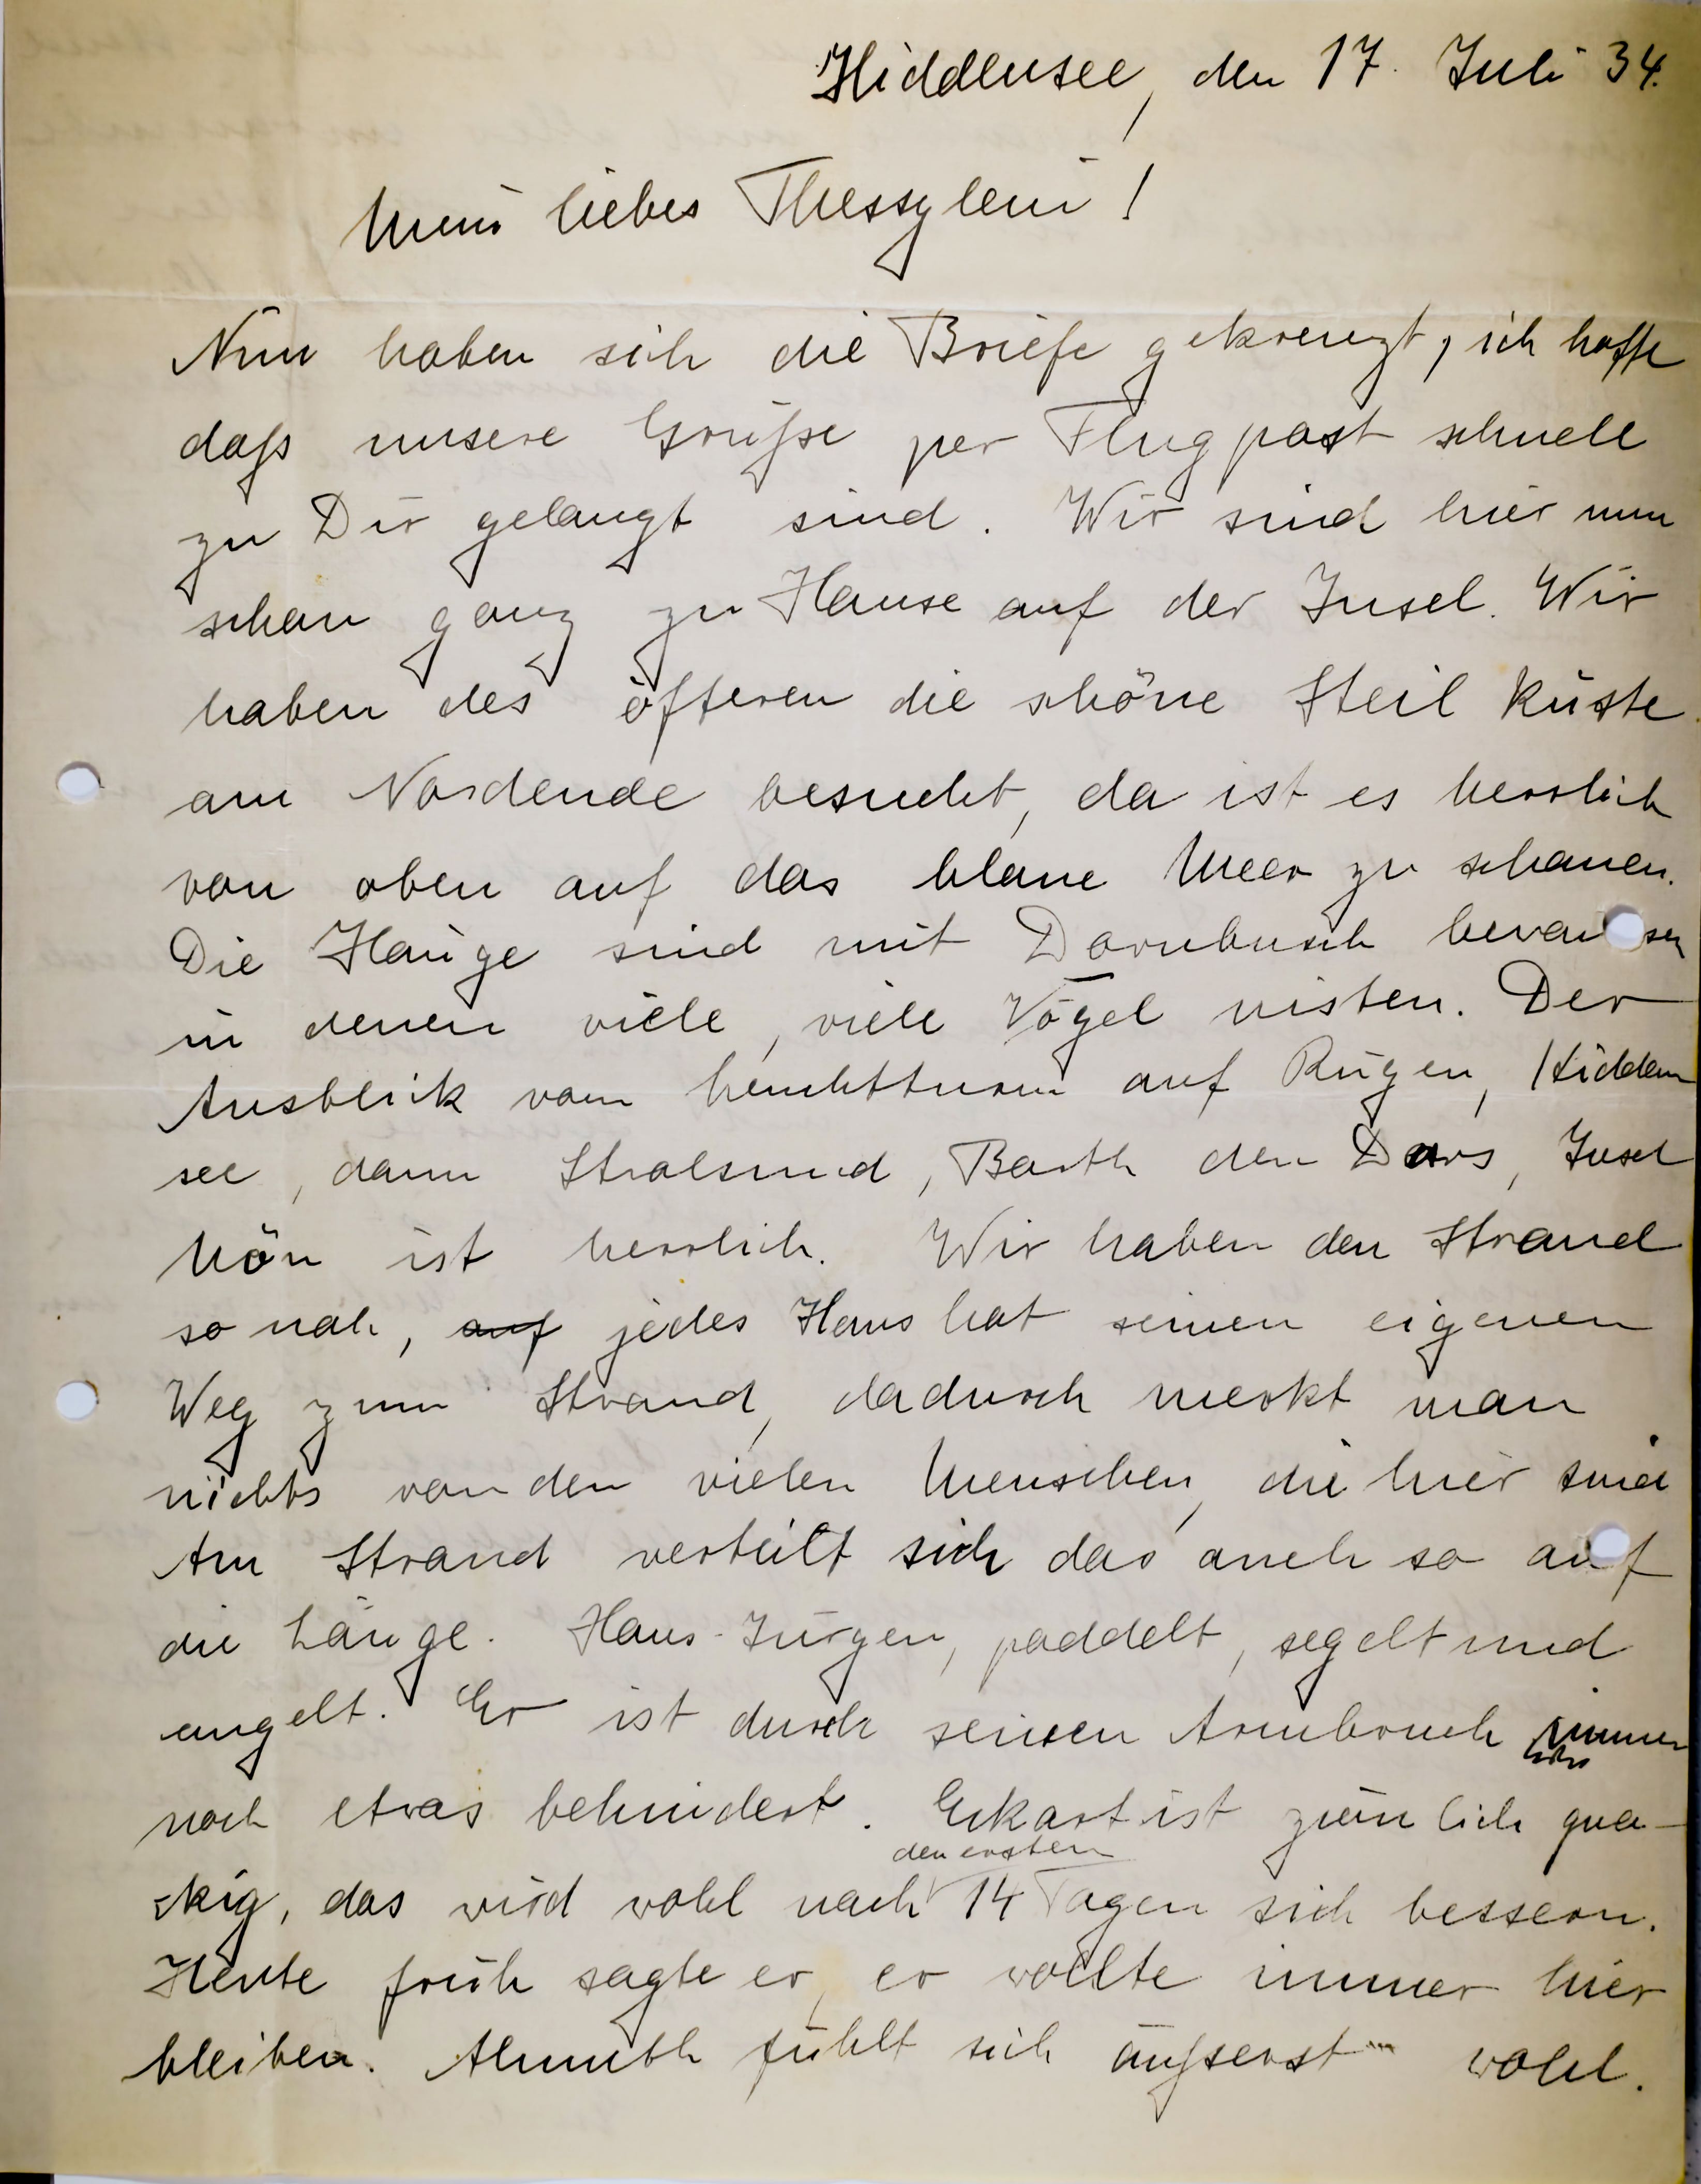 Hiddensee, den 17. Juli 34.
Mein liebes Thessylein!
Nun haben sich die Briefe gekreuzt, ich hoffe
daß unsere Grüße per Flugpost schnell
zu Dir gelangt sind. Wir sind hier nun
schon ganz zu Hause auf der Insel. Wir
haben des öfteren die schöne Steil küste
am Nordende besucht, da ist es herrlich
von oben auf das blaue Meer zu schauen.
Die Hänge sind mit Dornbusch
in denen viele, viele Vögel nisten. Der
Ausblick vom Leuchtturm auf Rügen, Hidden
see, dann Stralsund, Barth den Dars, Insel
Mön ist herrlich. Wir haben den Strand
so nah, auf jedes Haus hat seinen eigenen
Weg zum Strand, dadurch merkt man
nichts von den vielen Menschen, die hier sind
Am Strand verteilt sich das auch so auf
die Länge. Hans-Jürgen, paddelt, segelt und
angelt. Er ist durch seinen Armbruch immer
noch etwas behindert. Eckart ist ziemlich qua-
den ersten
kig, das wird wohl nach 14 Tagen sich bessern.
Heute früh sagte er, er wollte immer hier
bleiben. Almuth fühlt sich äußerst wohl.